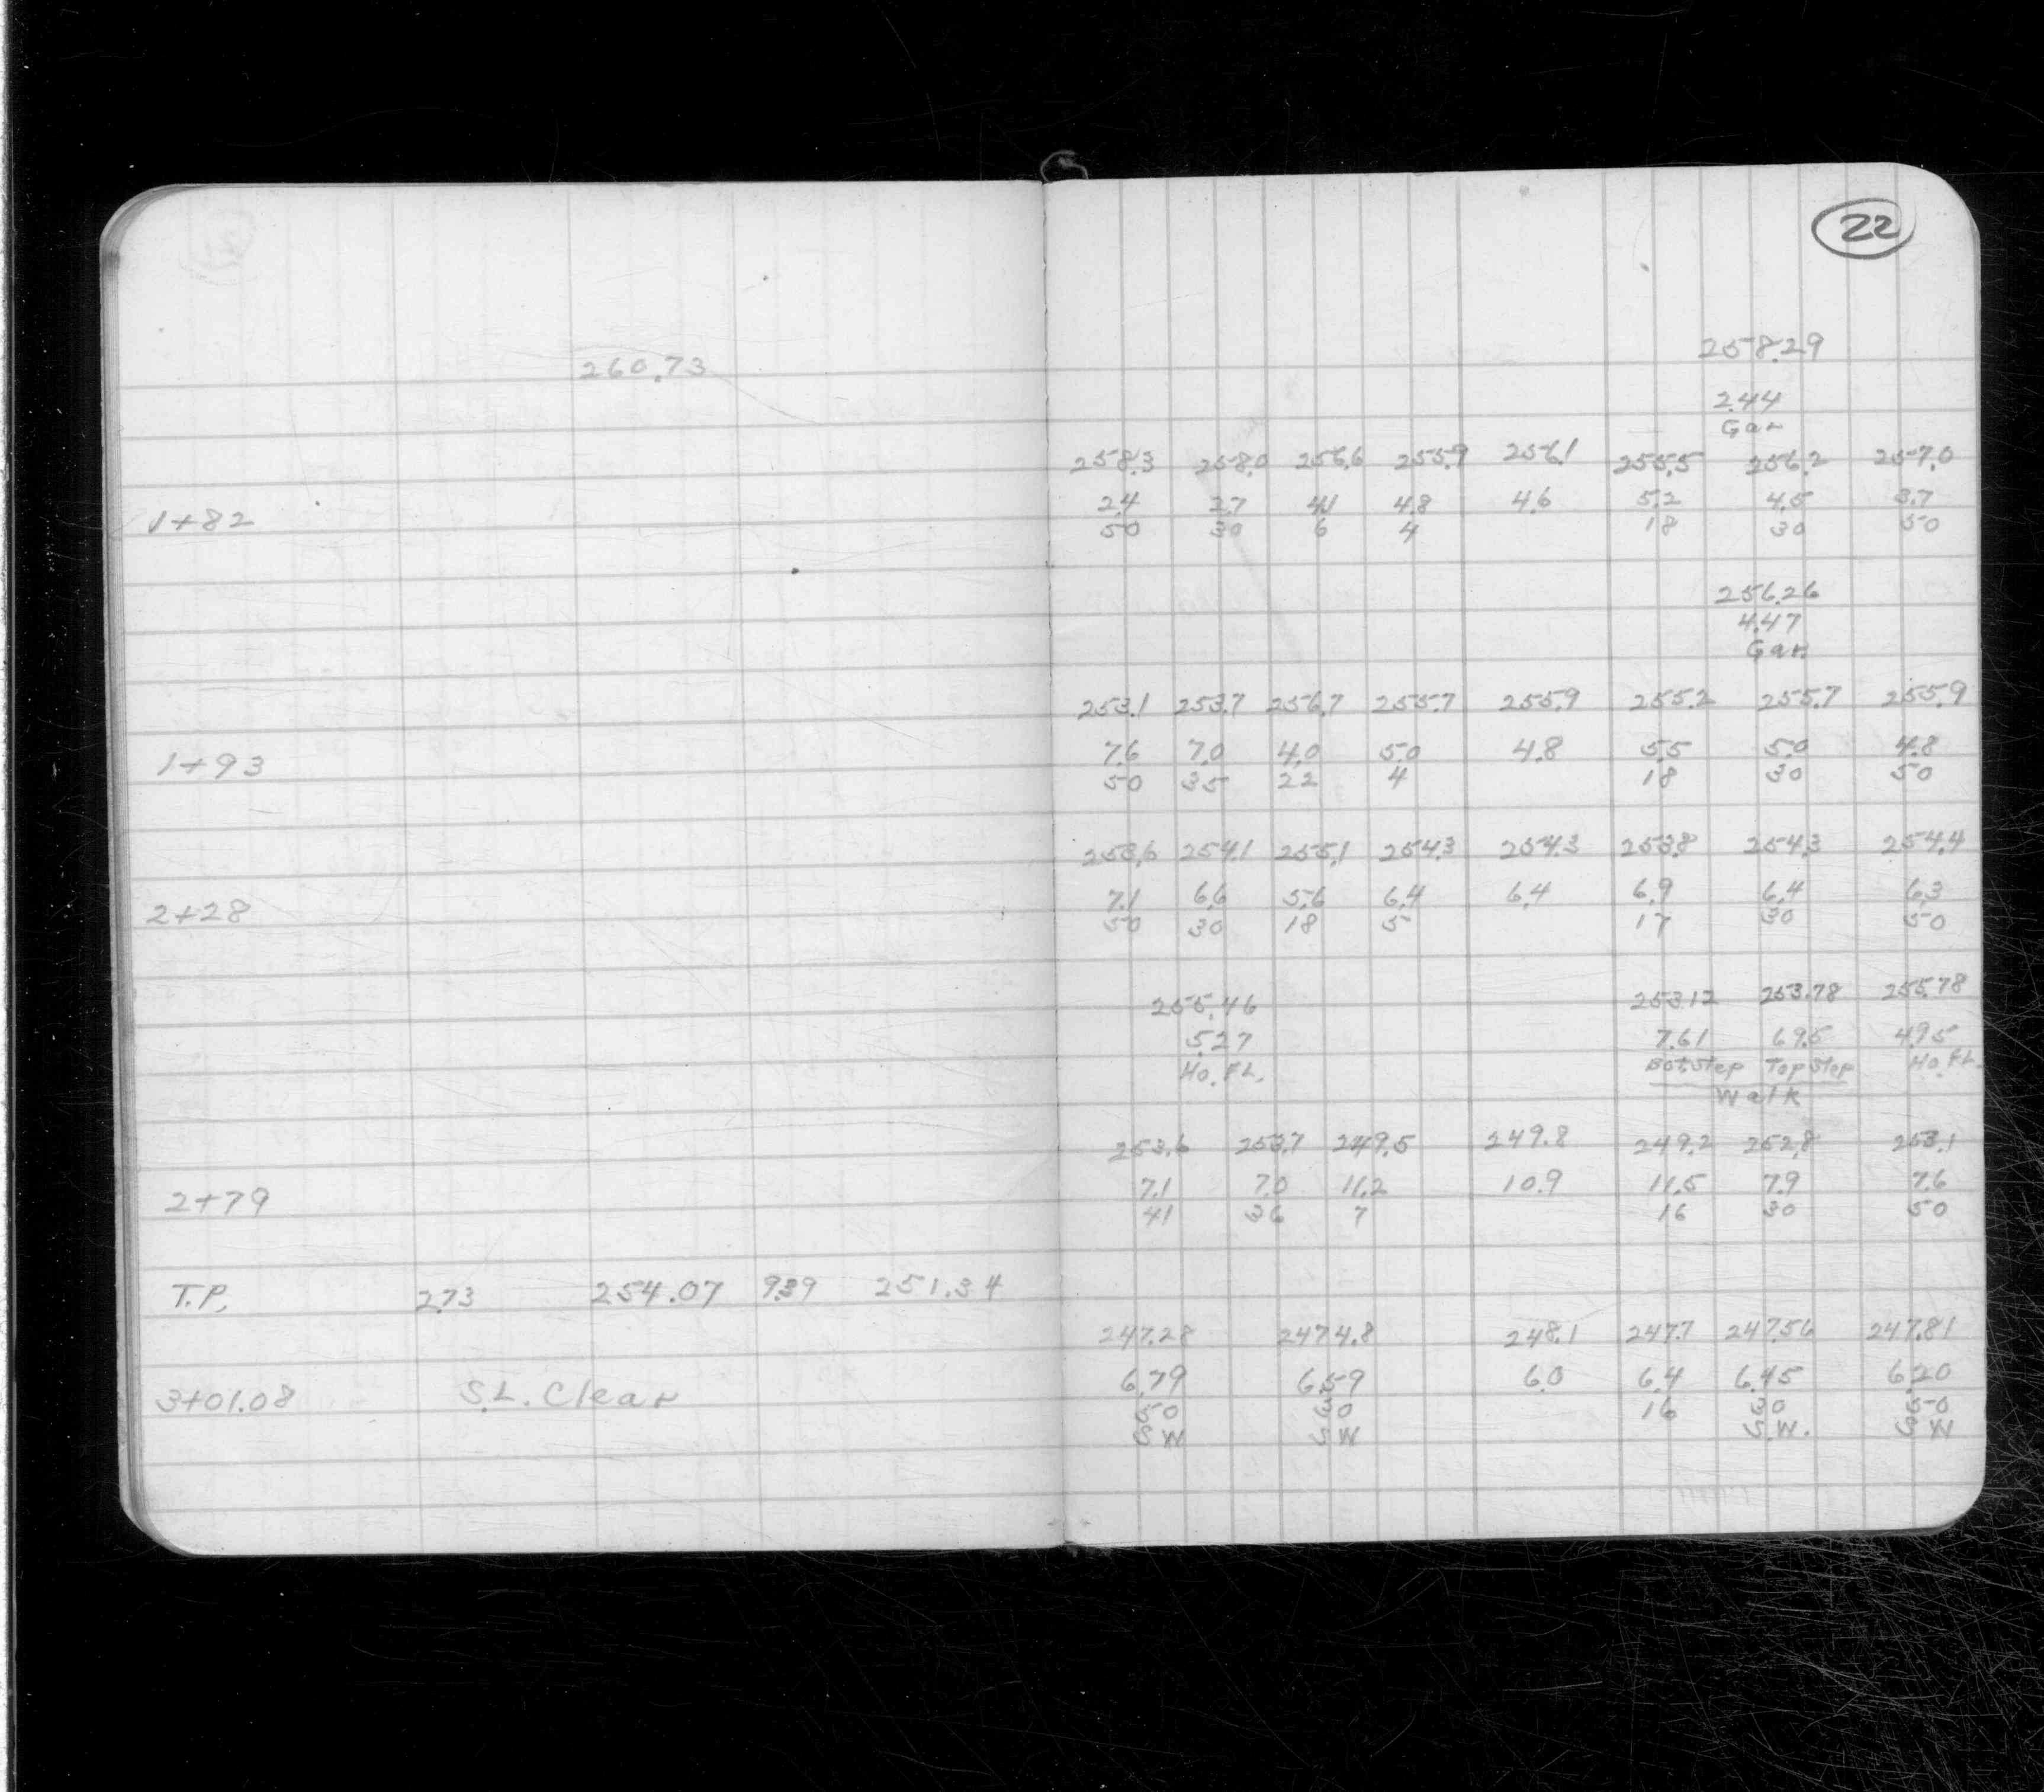 22
260.73
258.29
2.44
Gar
258.3 258.0 256.6 255.9 256.1 255.5 256.2 257.0
1+82 2.4 2.7 4.1 4.8 4.6 5.2 4.5 3.7
50 30 6 4 18 30 50
256.26
4.47
Gar
253.1 253.7 256.7 255.7 255.9 255.2 255.7 255.9
1+93 7.6 7.0 4.0 5.0 4.8 5.5 5.0 4.8
50 35 22 4 18 30 50
253.6 254.1 255.1 254.3 254.3 253.8 254.3 254.4
2+28 7.1 6.6 5.6 6.4 6.4 6.9 6.4 6.3
50 30 18 5 17 30 50
255.46 253.12 253.78 255.78
5.27 7.61 6.95 4.95
Ho. FL. Bot Step Top Step Ho. FL.
Walk
253.6 253.7 249.5 249.8 249.2 252.8 253.1
2+79 7.1 7.0 11.2 10.9 11.5 7.9 7.6
41 36 7 16 30 50
T.P. 2.73 254.07 9.39 251.34
247.28 247.48 248.1 247.7 247.56 247.81
3+01.08 S.L. Clear 6.79 6.59 6.0 6.4 6.45 6.20
50 30 16 30 50
SW SW S.W. SW